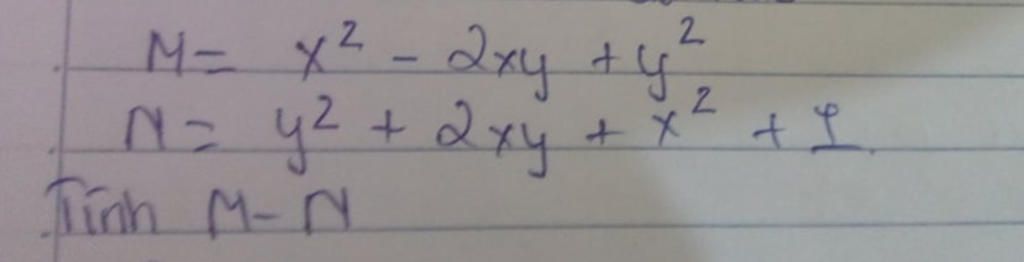 M = x² - 2xy + y²
N = y² + 2xy + x² + 1
Tính M - N